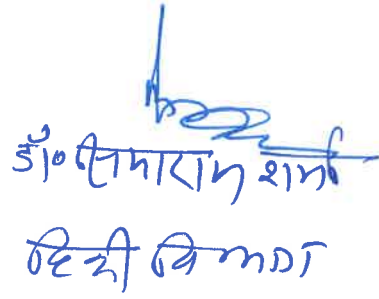 डॉ० सियाराम शर्मा
हिन्दी विभाग